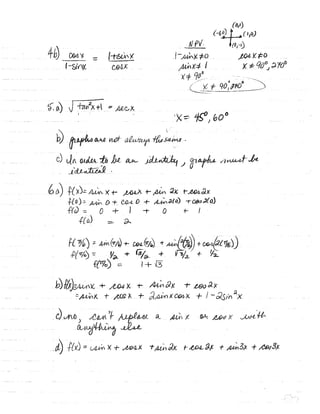 (0,1)
(-1,0) (1,0)
(0,-1)
4b) cosx / 1-sinx = 1+sinx / cosx
NPV
1-sinx≠0 cosx≠0
sinx≠1 x≠90°, 270°
x≠90°
x≠90°, 270°
5.a) √tan²x+1 = secx
x= 45°, 60°
b) graphs are not always the same.
c) In order to be an identity, graphs must be
identical.
6a) f(x)= sin x + cosx + sin 2x + cos2x
f(0)= sin 0 + cos 0 + sin2(0) + cos2(0)
f(0) = 0 + 1 + 0 + 1
f(0) = 2
f(π/6) = sin(π/6) + cos(π/6) + sin(2(π/6)) + cos(2(π/6))
f(π/6) = 1/2 + √3/2 + √3/2 + 1/2
f(π/6) = 1+√3
b) f(x)=sinx + cosx + sin2x + cos2x
=sinx + cosx + 2sinxcosx + 1-2sin²x
c) no, can't replace a sin x or cosx with
anything else
d) f(x) = sinx + cosx + sin2x + cos2x + sin3x + cos3x